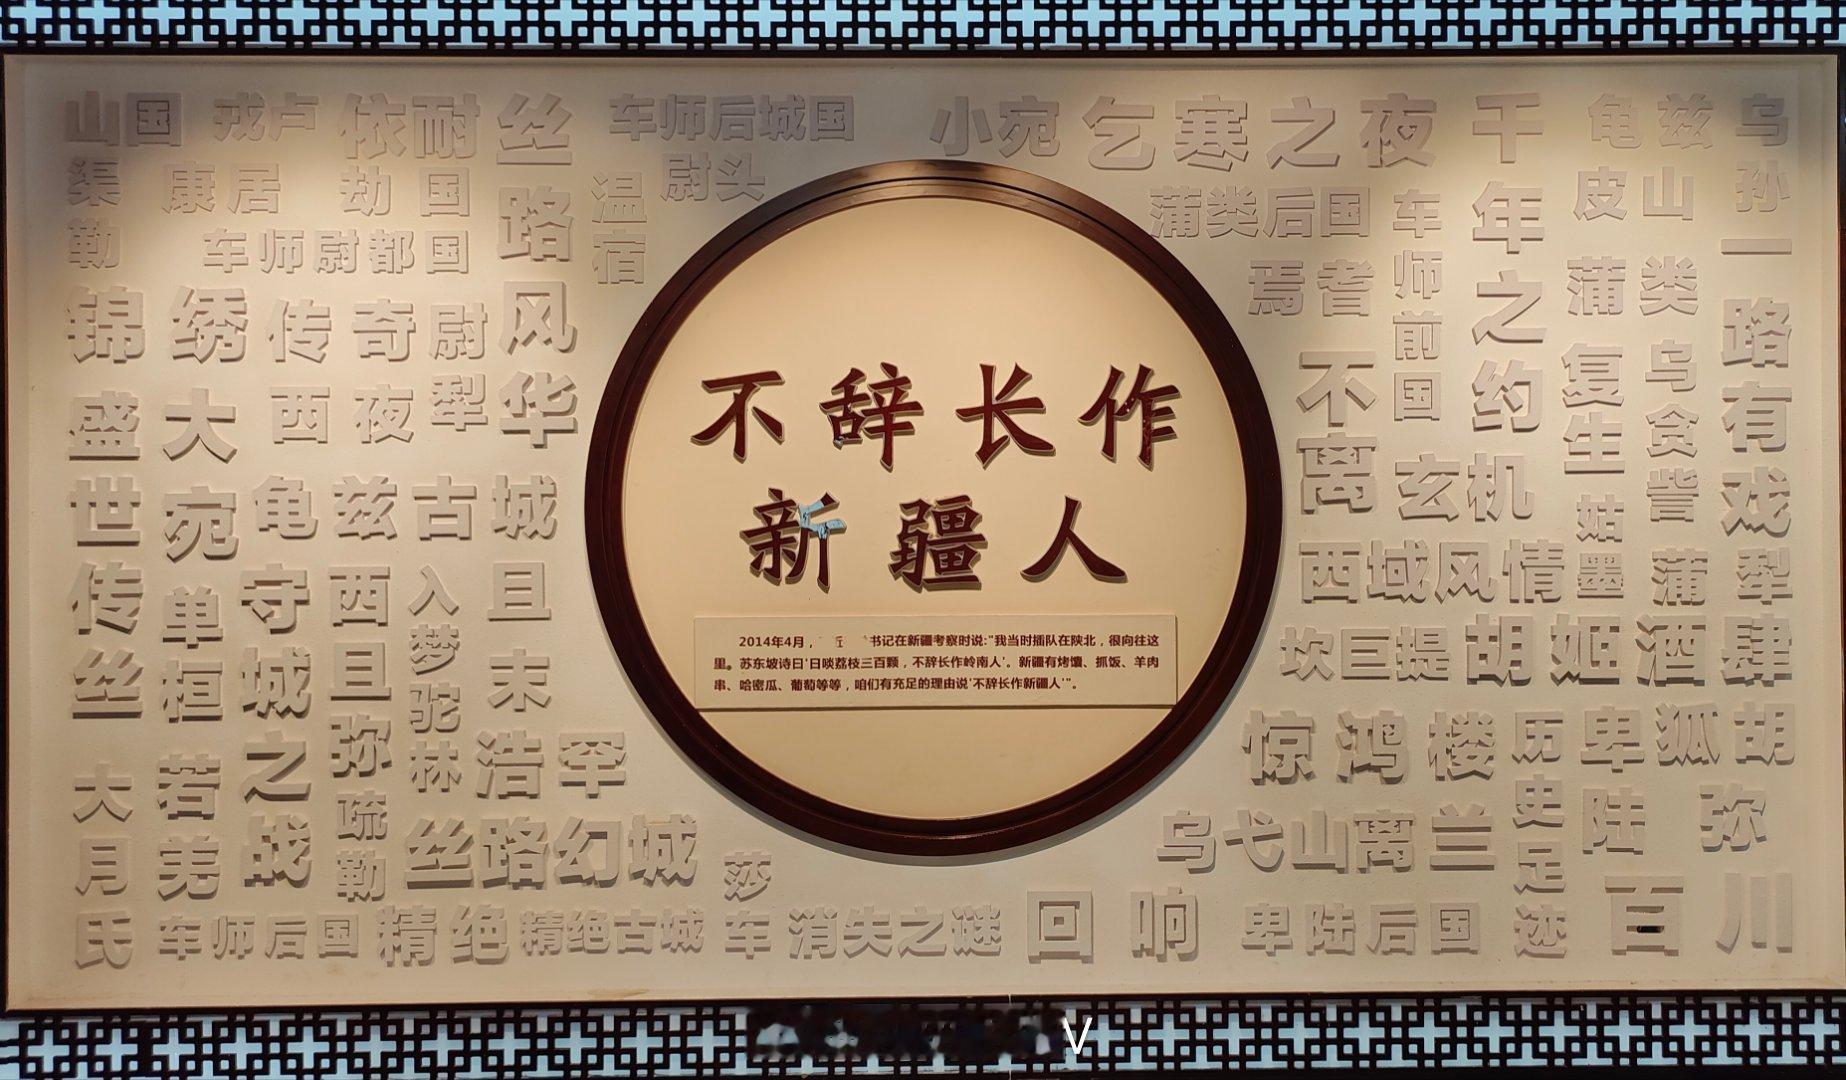 不辞长作
新疆人
2014年4月，书记在新疆考察时说:"我当时插队在陕北，很向往这
里。苏东坡诗曰'日啖荔枝三百颗，不辞长作岭南人'。新疆有烤馕、抓饭、羊肉
串、哈密瓜、葡萄等等，咱们有充足的理由说'不辞长作新疆人'"。
山国
戎卢
依耐
丝路风华
车师后城国
小宛
乞寒之夜
千年之约
龟兹
乌孙
渠勒
康居
劫国
温宿
尉头
蒲类后国
车师前国
皮山
车师尉都国
焉耆
蒲类
一路有戏
锦绣
传奇
尉犁
不离
复生
乌贪訾
盛世传丝
大宛
西夜
玄机
姑墨
龟兹古城
单桓
守城之战
西且弥
入梦驼林
且末
西域风情
蒲犁
坎巨提
胡姬酒肆
大月氏
若羌
疏勒
浩罕
惊鸿楼
历史足迹
卑陆
狐胡
弥
丝路幻城
莎车
乌弋山离
兰
车师后国
精绝
精绝古城
消失之谜
回响
卑陆后国
百川
V